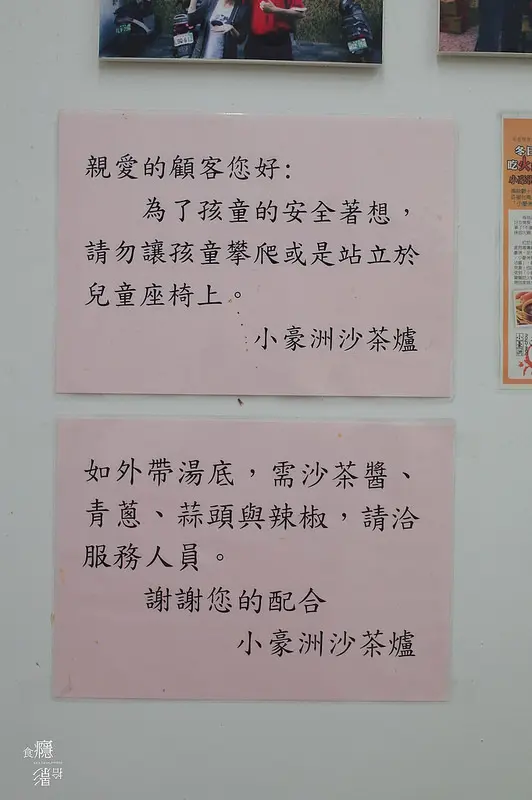 親愛的顧客您好:
為了孩童的安全著想，
請勿讓孩童攀爬或是站立於
兒童座椅上。
小豪洲沙茶爐
如外帶湯底，需沙茶醬、
青蔥、蒜頭與辣椒，請洽
服務人員。
謝謝您的配合
小豪洲沙茶爐
冬日